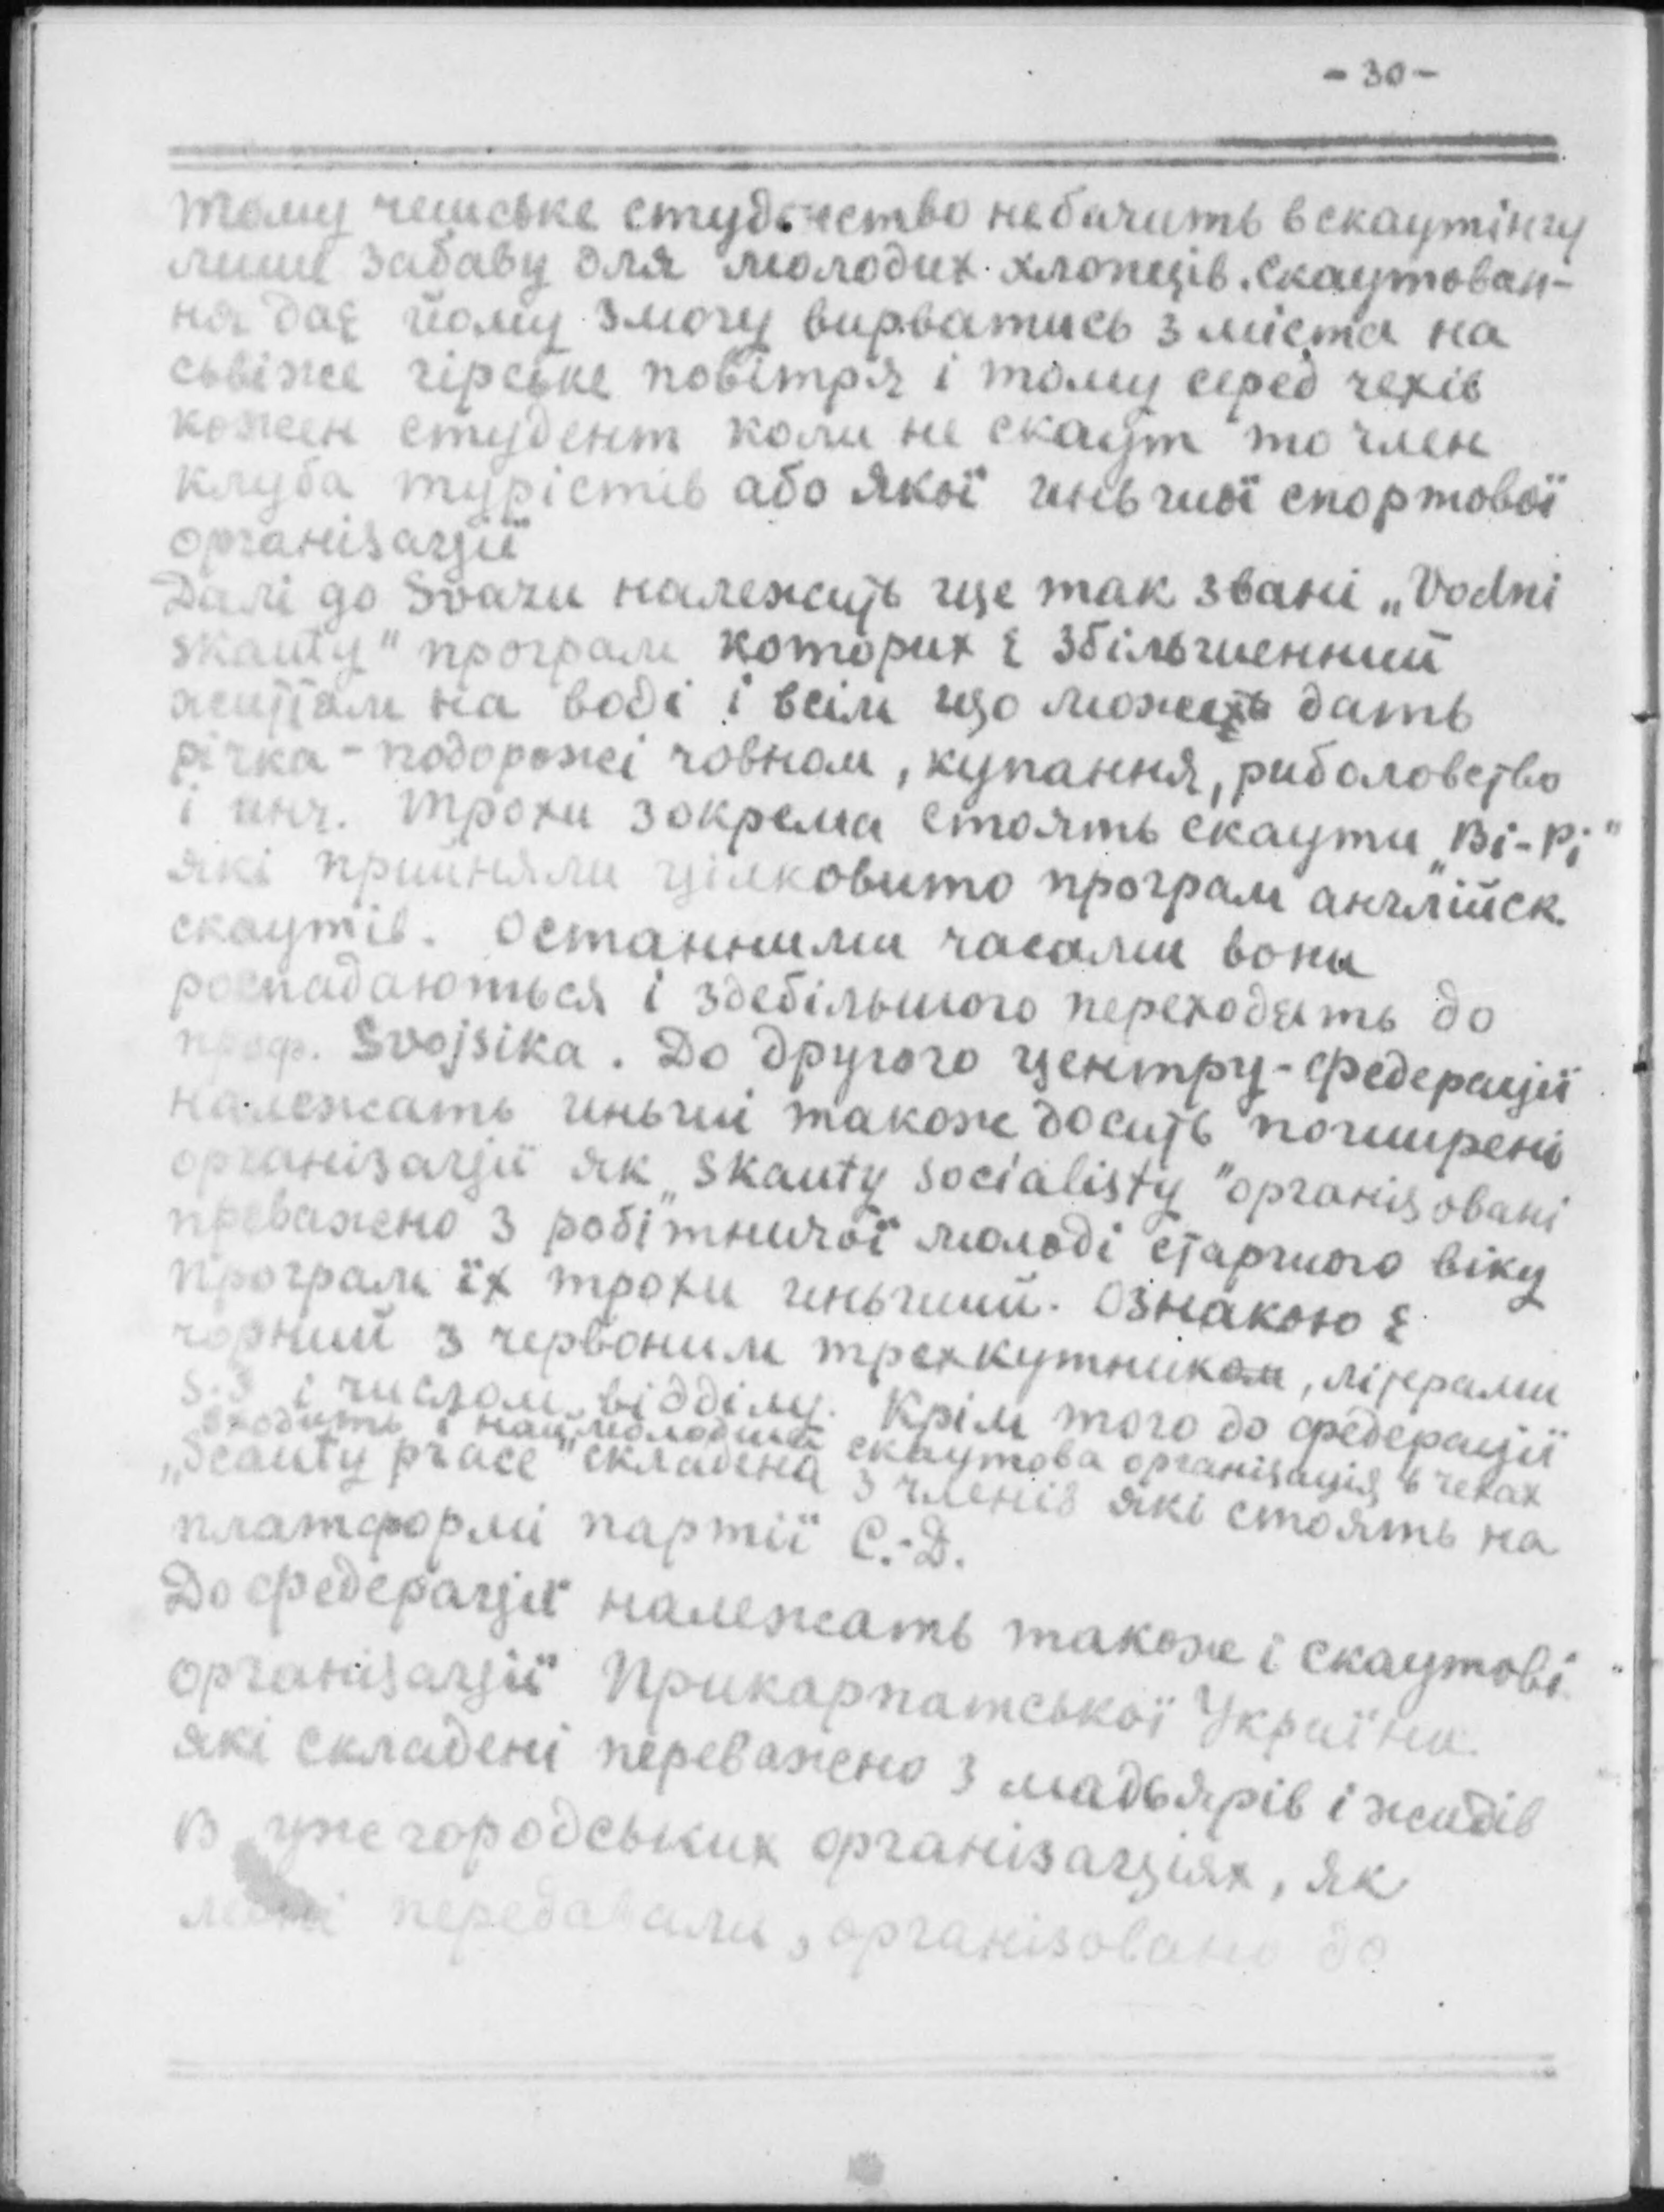 - 30 -
Тому чешське студенство небачить в скаутінгу
лише забаву для молодих хлопців. Скаутован-
ня дає йому змогу вирватись з міста на
сьвіже гірське повітря і тому серед чехів
кожен студент коли не скаут то член
клуба турістів або якої иньчої спортової
організації
Далі до Svazu належить ще так звані „Vodni
skauty" програм которих є збільшенний
життям на воді і всім що можеть дать
річка - подорожі човном, купання, риболовство
і инч. Трохи зокрема стоять скаути „Ві-Рі"
які прийняли цілковито програм англійск.
скаутів. Останними часами вони
роспадаються і здебільшого переходять до
проф. Svojsika. До другого центру - федерації
належать иньчі також досить поширені
організації як „Skauty socialisty" організовані
преважено з робітничої молоді старшого віку
Програм їх трохи иньчий. Ознакою є
чорний з червоним трехкутником, літерами
S.S і числом відділу. Крім того до федерації
входить і наймолодша скаутова організація в чехах
„Scauty práce" складена з членів які стоять на
платформі партії С.-Д.
До федерації належать також і скаутові
організації Прикарпатської України
які складені переважено з мадьярів і жидів
В ужгородських організаціях, як
мені передавали, організовано до